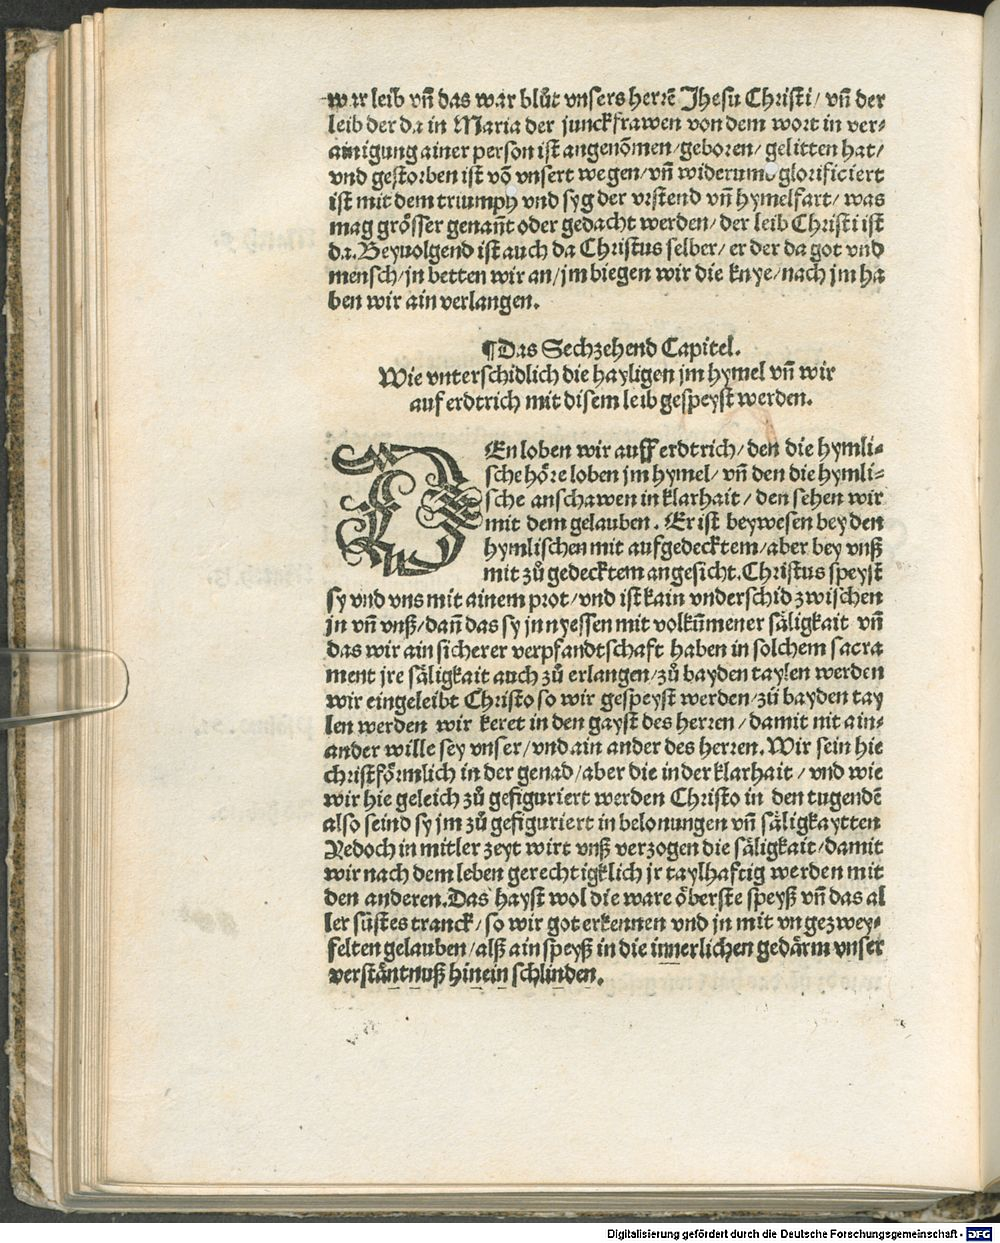 war leib vñ das war blůt vnsers herrẽ Jhesu Christi/ vñ der
leib der da in Maria der junckfrawen von dem wort in ver⸗
ainigung ainer person ist angenõmen/geboren/ gelitten hat/
vnd gestorben ist võ vnsert wegen/ vñ widerumb glorificiert
ist mit dem triumph vnd syg der vrstend vñ hymelfart/ was
mag grösser genañt oder gedacht werden/ der leib Christi ist
da. Beyuolgend ist auch da Christus selber/ er der da got vnd
mensch/jn betten wir an/jm biegen wir die knye/nach jm ha
ben wir ain verlangen.
¶Das Sechzehend Capitel.
Wie vnterschidlich die hayligen jm hymel vñ wir
auf erdtrich mit disem leib gespeyst werden.
DEn loben wir auff erdtrich/ den die hymli⸗
sche höre loben jm hymel/ vñ den die hymli⸗
sche anschawen in klarhait/ den sehen wir
mit dem gelauben. Er ist beywesen bey den
hymlischen mit aufgedecktem/aber bey vnß
mit zů gedecktem angesicht. Christus speyst
sy vnd vns mit ainem prot/ vnd ist kain vnderschid zwischen
jn vñ vnß/ dañ das sy jn nyessen mit volkũmener säligkait vñ
das wir ain sicherer verpfandtschaft haben in solchem sacra
ment jre säligkait auch zů erlangen/ zů bayden taylen werden
wir eingeleibt Christo so wir gespeyst werden/ zů bayden tay
len werden wir keret in den gayst des herren/ damit nit ain⸗
ander wille sey vnser/ vnd ain ander des herren. Wir sein hie
christförmlich in der genad/ aber die in der klarhait/ vnd wie
wir hie geleich zů gefiguriert werden Christo in den tugendẽ
also seind sy jm zů gefiguriert in belonungen vñ säligkaytten
Yedoch in mitler zeyt wirt vnß verzogen die säligkait/ damit
wir nach dem leben gerechtigklich jr taylhaftig werden mit
den anderen. Das hayst wol die ware öberste speyß vñ das al
ler süstes tranck/ so wir got erkennen vnd jn mit vngezwey⸗
felten gelauben/ alß ain speyß in die innerlichen gedärm vnser
verstäntnuß hinein schlinden.
Digitalisierung gefördert durch die Deutsche Forschungsgemeinschaft - DFG